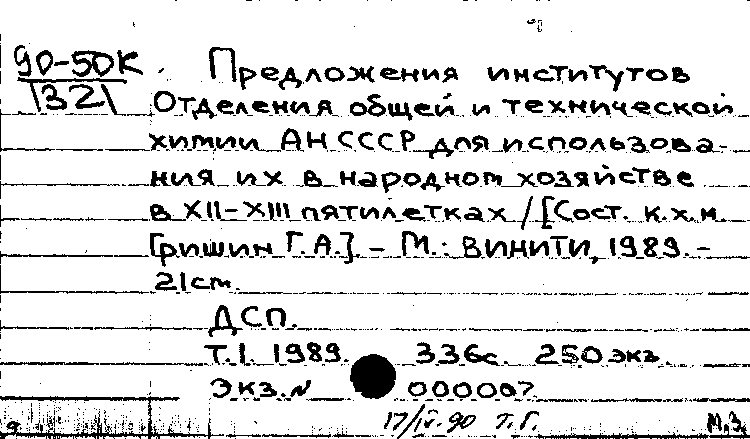 90-50К
1321
Предложения институтов
Отделения общей и технической
химии АН СССР для использова-
ния их в народном хозяйстве
в XII-XIII пятилетках / [Сост. к.х.н.
Гришин Г.А.]. - М.: ВИНИТИ, 1989. -
21 см.
ДСП.
Т.1. 1989. 336с. 250 экз.
Экз. N 000007
17/IV-90 Т.Г. М.З.